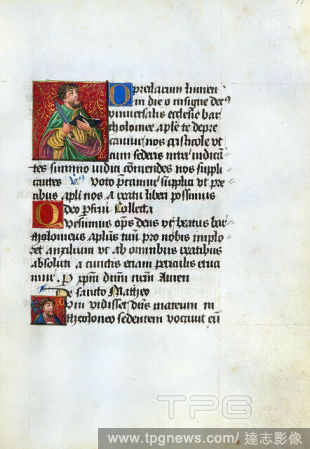 O preclarum lumen
in die o insigne dec9
universalis ecclesie bar
tholomee aple te depre
camur nos
cum sederis inter iudica
tes summo iudici nos supli
cantes voto supliciter ut pre
cibus apli nos a possimus
deo frui Collecta
Quesumus ops deus ut beatus bar
tholomeus aplus tuus pro nobis implo
ret auxilium ut ab omnibus reatibus
absoluti a cunctis etiam periculis erua
mur. P xpm dnm nrm Amen
De sancto Matheo
Cum vidisset dnus mateum in
theoloneo sedentem vocavit eu
TPG
www.tpgnews.com/ 達志影像